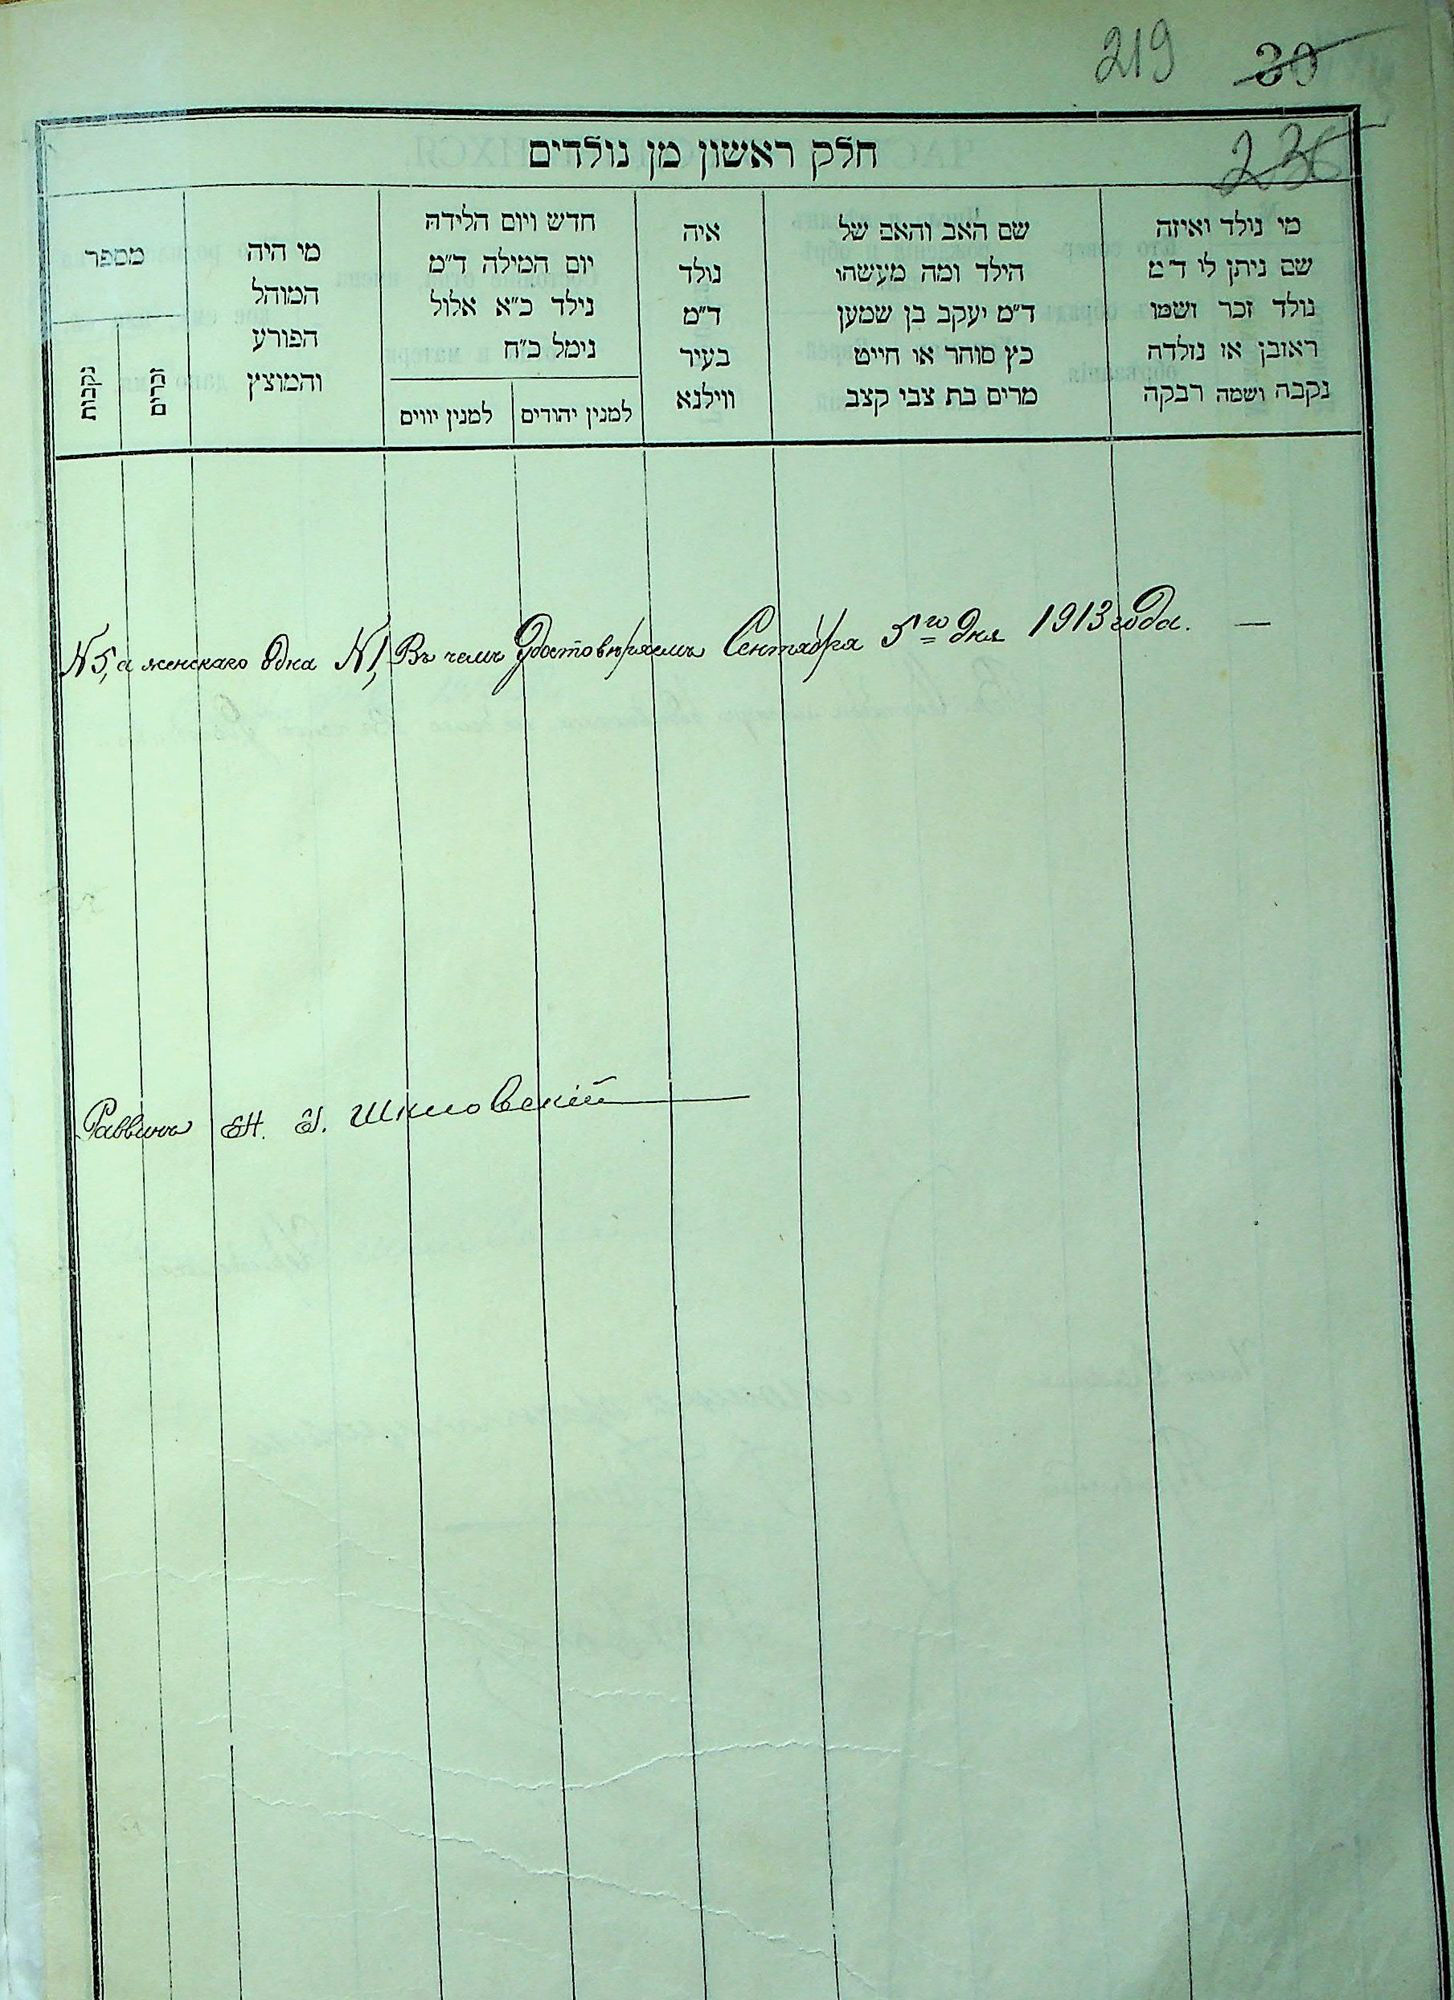 219 30
236
חלק ראשון מן נולדים
מי נולד ואיזה
שם ניתן לו ד״מ
נולד זכר ושמו
ראובן או נולדה
נקבה ושמה רבקה
שם האב והאם של
הילד ומה מעשהו
ד״מ יעקב בן שמעון
כץ סוחר או חייט
מרים בת צבי קצב
איה
נולד
ד״מ
בעיר
ווילנא
חדש ויום הלידה
יום המילה ד״מ
נילד כ״א אלול
נימל כ״ח
למנין יהודים
למנין יוונים
מי היה
המוהל
הפורע
והמוצץ
מספר
זכרים
נקבות
№ 5, а женскаго одна № 1, Въ чемъ Удостовѣряемъ Сентября 5го дня 1913 года. —
Раввинъ Шкловскій